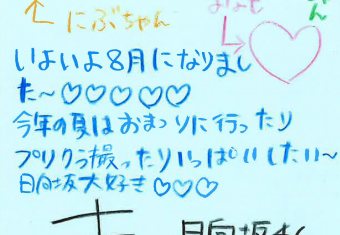 にぶちゃん
いよいよ8月になりまし
た〜♡♡♡♡♡
今年の夏はおまつりに行ったり
プリクラ撮ったりいっぱいしたい〜
日向坂大好き♡♡♡
日向坂